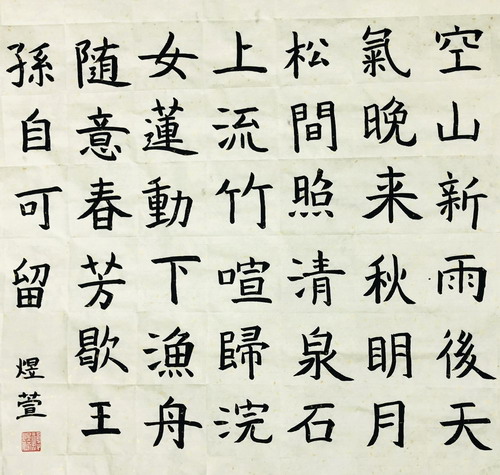 空山新雨後天
氣晚来秋明月
松間照清泉石
上流竹喧歸浣
女蓮動下漁舟
随意春芳歇王
孫自可留
煜萱